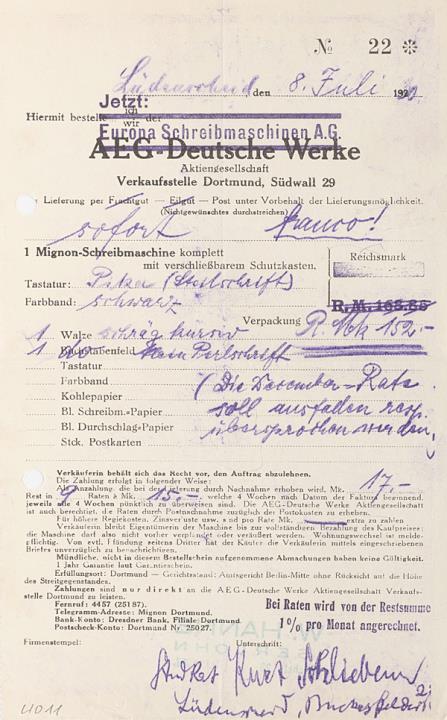 № 22 ※
Lüdenscheid, den 8. Juli 19
Jetzt:
Hiermit bestelle ich wir der
Europa Schreibmaschinen A.G.
AEG-Deutsche Werke
Aktiengesellschaft
Verkaufsstelle Dortmund, Südwall 29
Lieferung per Frachtgut — Eilgut — Post unter Vorbehalt der Lieferungsmöglichkeit.
(Nichtgewünschtes durchstreichen)
sofort franco!
1 Mignon-Schreibmaschine komplett
mit verschließbarem Schutzkasten.
Reichsmark
Tastatur: Pika (Steilschrift)
Farbband: schwarz
R.M. 168.85
Verpackung R. Mk 152,-
1 Walze schräg kursiv
1 Buchstabenfeld Perlschrift
Tastatur
Farbband (Die Dezember-Rate
Kohlepapier
Bl. Schreibm.-Papier soll ausfallen resp.
Bl. Durchschlag-Papier übersprochen werden)
Stck. Postkarten
Verkäuferin behält sich das Recht vor, den Auftrag abzulehnen.
Die Zahlung erfolgt in folgender Weise:
Als Anzahlung, die bei der Lieferung durch Nachnahme erhoben wird, Mk. 17,-
Rest in 9 Raten à Mk. 15,- welche 4 Wochen nach Datum der Faktura beginnend,
jeweils alle 4 Wochen pünktlich zu überweisen sind. Die AEG-Deutsche Werke Aktiengesellschaft
ist auch berechtigt, die Raten durch Postnachnahme zuzüglich der Postkosten zu erheben.
Für höhere Regiekosten, Zinsverluste usw. sind pro Rate Mk. extra zu zahlen
Verkäuferin bleibt Eigentümerin der Maschine bis zur vollständigen Bezahlung des Kaufpreises;
die Maschine darf also nicht vorher verpfändet oder veräußert werden. Wohnungswechsel ist melde-
pflichtig. Von evtl. Pfändung seitens Dritter hat der Käufer die Verkäuferin mittels eingeschriebenen
Briefes unverzüglich zu benachrichtigen.
Mündliche, nicht in diesem Bestellschein aufgenommene Abmachungen haben keine Gültigkeit.
1 Jahr Garantie laut Garantieschein.
Erfüllungsort: Dortmund — Gerichtsstand: Amtsgericht Berlin-Mitte ohne Rücksicht auf die Höhe
des Streitgegenstandes.
Zahlungen sind nur direkt an die AEG-Deutsche Werke Aktiengesellschaft Verkaufs-
stelle Dortmund zu leisten.
Fernruf: 4457 (25187).
Telegramm-Adresse: Mignon Dortmund.
Bank-Konto: Dresdner Bank, Filiale Dortmund
Postscheck-Konto: Dortmund Nr. 25027.
Bei Raten wird von der Restsumme
1% pro Monat angerechnet.
Firmenstempel:
Unterschrift:
Kurt Schlieben
Lüdenscheid,
4011